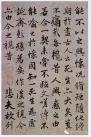 能不以之興懷況脩短隨化終期
於盡古人云死生亦大矣豈不
痛哉每攬昔人興感之由若合
一契未嘗不臨文嗟悼不
能喻之於懷固知一死生為虛
誕齊彭殤為妄作後之視今
亦由今之視昔悲夫故